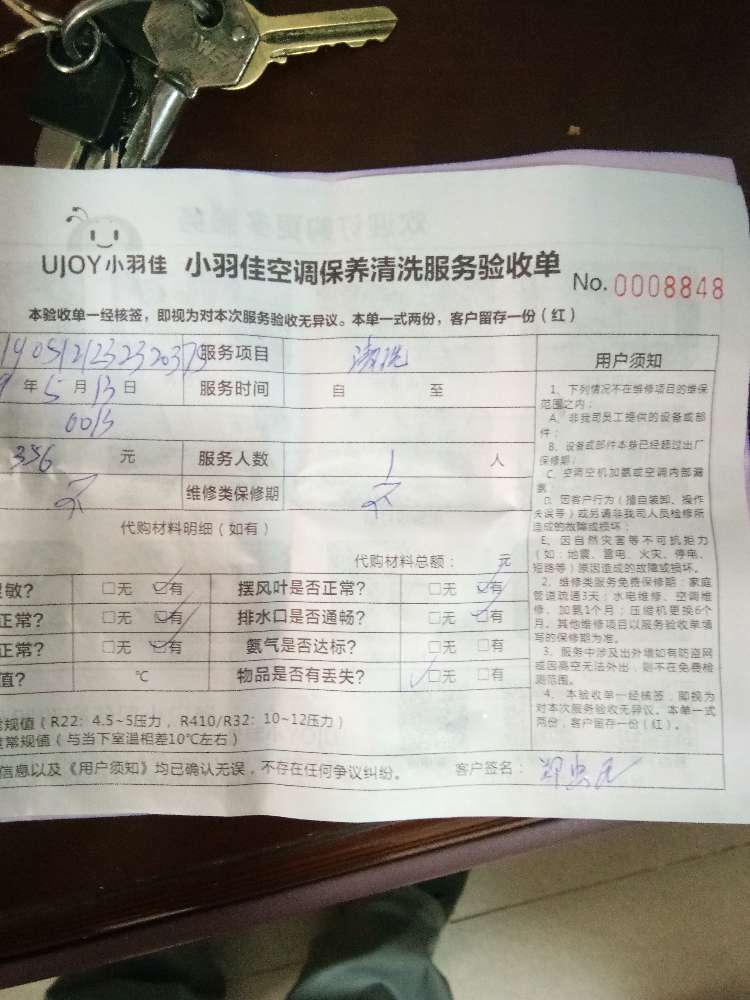 UJOY小羽佳 小羽佳空调保养清洗服务验收单 No.0008848
本验收单一经核签，即视为对本次服务验收无异议。本单一式两份，客户留存一份（红）
服务项目 清洗
年 5 月 13 日 服务时间 自 至
356 元 服务人数 1 人
维修类保修期
代购材料明细（如有）
代购材料总额： 元
敏? □无 □有 摆风叶是否正常? □无 □有
正常? □无 □有 排水口是否通畅? □无 □有
正常? □无 □有 氨气是否达标? □无 □有
值? ℃ 物品是否有丢失? □无 □有
常规值（R22：4.5~5压力，R410/R32：10~12压力）
常规值（与当下室温相差10℃左右）
信息以及《用户须知》均已确认无误，不存在任何争议纠纷。 客户签名：
用户须知
1、下列情况不在维修项目的维保
范围之内：
A、非我司员工提供的设备或部
件；
B、设备或部件本身已经超过出厂
保修期；
C、空调空机加氨或空调内部漏
氨；
D、因客户行为（擅自装卸、操作
失误等）或另请非我司人员检修所
造成的故障或损坏；
E、因自然灾害等不可抗拒力
（如：地震、雷电、火灾、停电、
短路等）原因造成的故障或损坏。
2、维修类服务免费保修期：家庭
管道疏通3天；水电维修、空调维
修、加氨1个月；压缩机更换6个
月。其他维修项目以服务验收单填
写的保修期为准。
3、服务中涉及出外墙如有防盗网
或因高空无法外出，则不在免费检
测范围。
4、本验收单一经核签，即视为
对本次服务验收无异议。本单一式
两份，客户留存一份（红）。